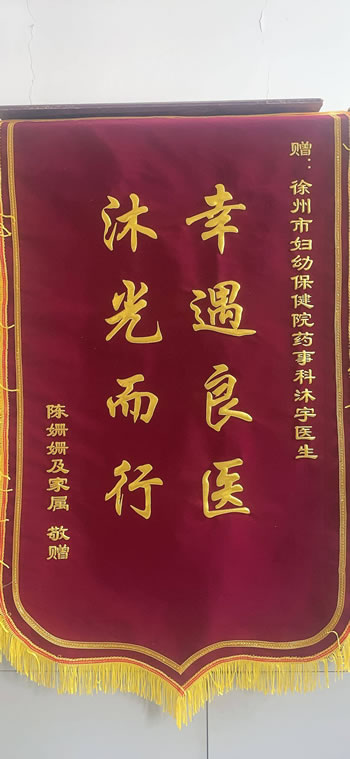 赠：徐州市妇幼保健院药事科沐宇医生
幸遇良医
沐光而行
陈姗姗及家属 敬赠